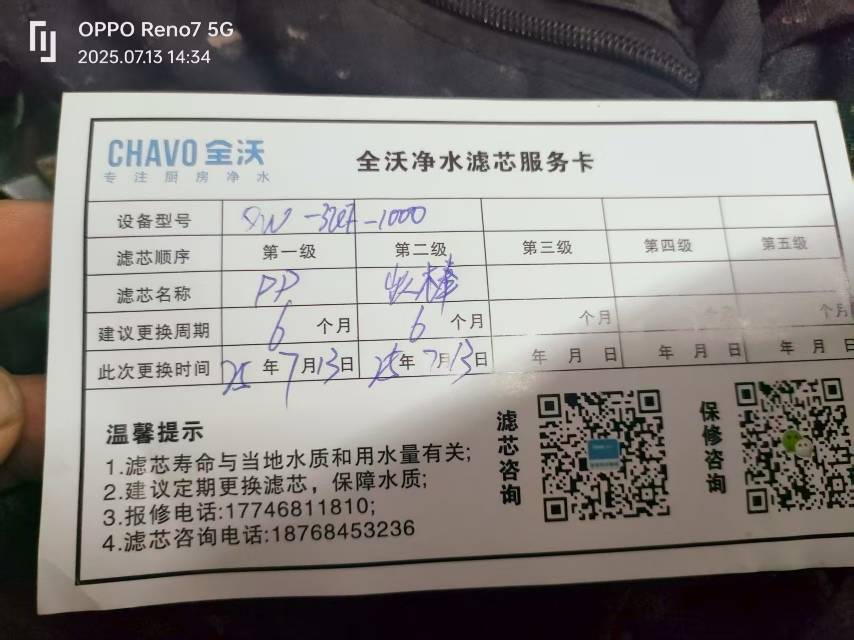 OPPO Reno7 5G
2025.07.13 14:34
CHAVO 全沃
专注厨房净水
全沃净水滤芯服务卡
设备型号
滤芯顺序 第一级 第二级 第三级 第四级 第五级
滤芯名称 PP 炭棒
建议更换周期 6 个月 6 个月 个月 个月 个月
此次更换时间 25年7月13日 25年7月13日 年 月 日 年 月 日 年 月 日
温馨提示
1.滤芯寿命与当地水质和用水量有关;
2.建议定期更换滤芯，保障水质;
3.报修电话:17746811810;
4.滤芯咨询电话:18768453236
滤芯咨询
保修咨询